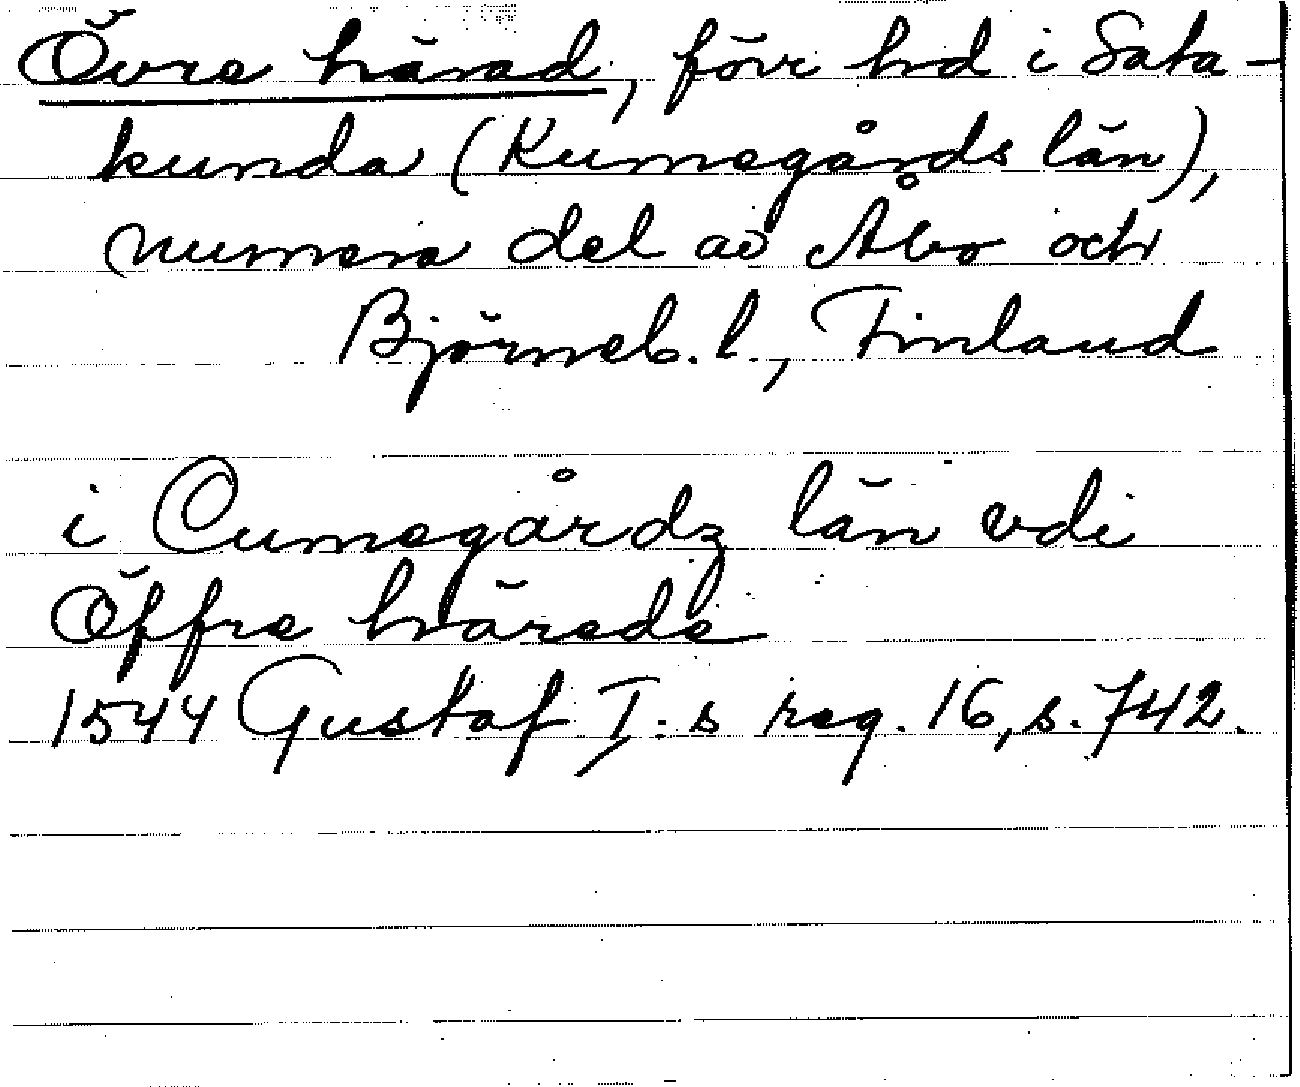 Övre härad, förr hd i Sata-
kunda (Kumogårds län),
numera del av Åbo och
Björneb. l., Finland
i Cumogårdz län vdi
Öffre härede
1544 Gustaf I:s reg. 16, s. 742.